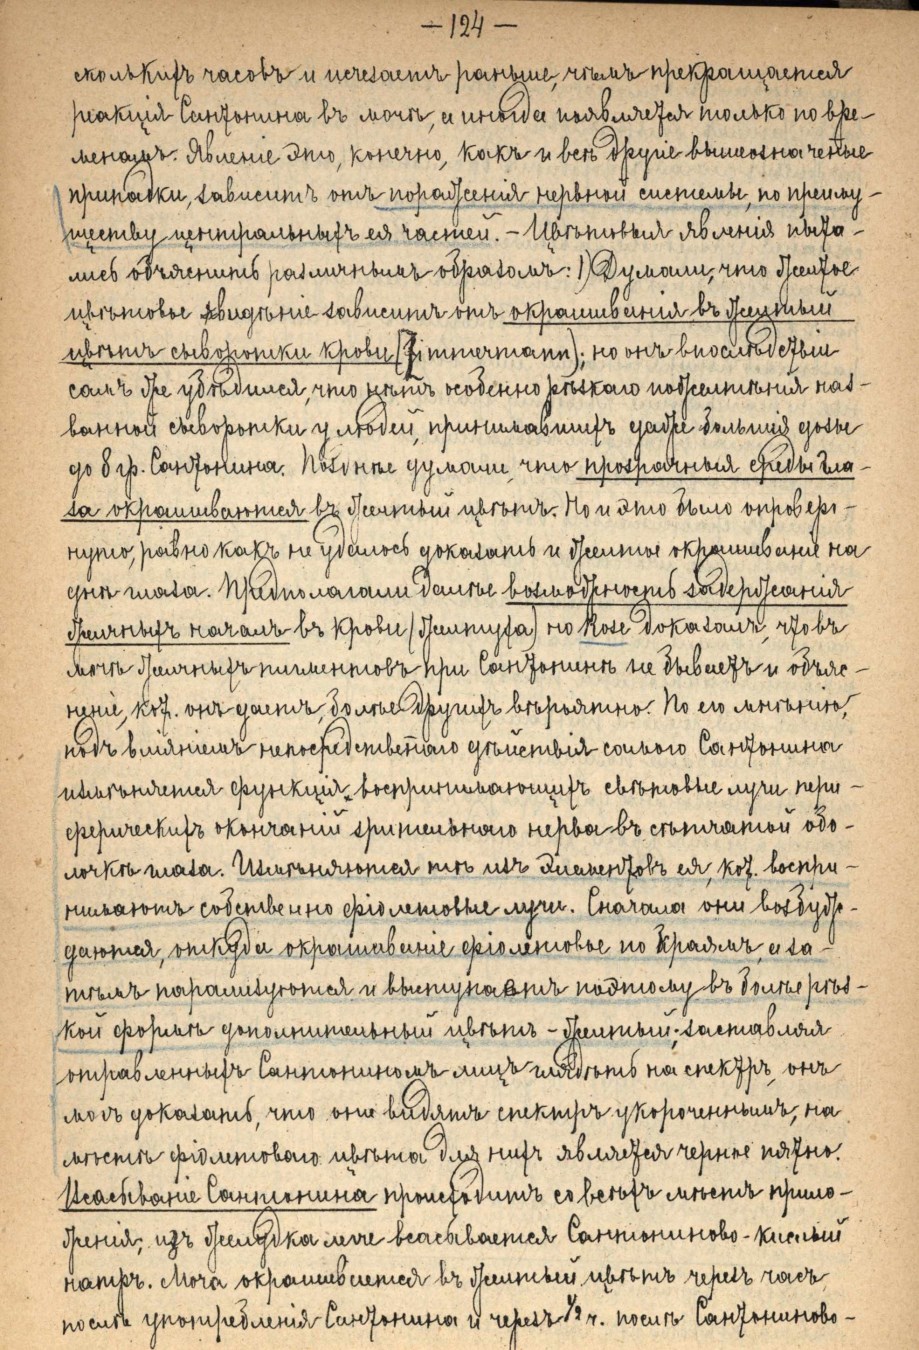 — 124 —
сколькихъ часовъ и исчезаетъ раньше, чѣмъ прекращается
реакція Сантонина въ мочѣ, а иногда появляется только по вре-
менамъ. Явленіе это, конечно, какъ и всѣ другіе вышеозначенные
припадки, зависитъ отъ пораженія нервной системы, по преиму-
ществу центральныхъ ея частей. – Цвѣтовыя явленія пыта-
лись объяснить различнымъ образомъ: 1) Думали, что желтое
цвѣтовое видѣніе зависитъ отъ окрашиванія въ желтый
цвѣтъ сыворотки крови (Zimmermann); но онъ впослѣдствіи
самъ же убѣдился, что нѣтъ особенно рѣзкаго пожелтѣнія наз-
ванной сыворотки у людей, принимавшихъ даже большія дозы
до 8 гр. Сантонина. Позднѣе думали, что прозрачныя среды гла-
за окрашиваются въ желтый цвѣтъ. Но и это было опроверг-
нуто, равно какъ не удалось доказать и желтое окрашиваніе на
днѣ глаза. Предполагали далѣе возможность задержанія
желчныхъ началъ въ крови (желтуха) но Rose доказалъ, что въ
мочѣ желчныхъ пигментовъ при Сантонинѣ не бываетъ и объяс-
неніе, кот. онъ даетъ, болѣе другихъ вѣроятно. По его мнѣнію,
подъ вліяніемъ непосредственнаго дѣйствія самого Сантонина
измѣняется функція воспринимающихъ свѣтовые лучи пери-
ферическихъ окончаній зрительнаго нерва въ сѣтчатой обо-
лочкѣ глаза. Измѣняются тѣ изъ элементовъ ея, кот. воспри-
нимаютъ собственно фіолетовые лучи. Сначала они возбуж-
даются, откуда окрашиваніе фіолетовое по краямъ, а за-
тѣмъ парализуются и выступаетъ поэтому въ болѣе рѣз-
кой формѣ дополнительный цвѣтъ – желтый; заставляя
отравленныхъ Сантониномъ лицъ глядѣть на спектръ, онъ
могъ доказать, что они видятъ спектръ укороченнымъ, на
мѣстѣ фіолетоваго цвѣта для нихъ является черное пятно.
Всасываніе Сантонина происходитъ со всѣхъ мѣстъ прило-
женія; изъ желудка легче всасывается Сантониново-кислый
натръ. Моча окрашивается въ желтый цвѣтъ черезъ часъ
послѣ употребленія Сантонина и черезъ ½ ч. послѣ Сантониново-